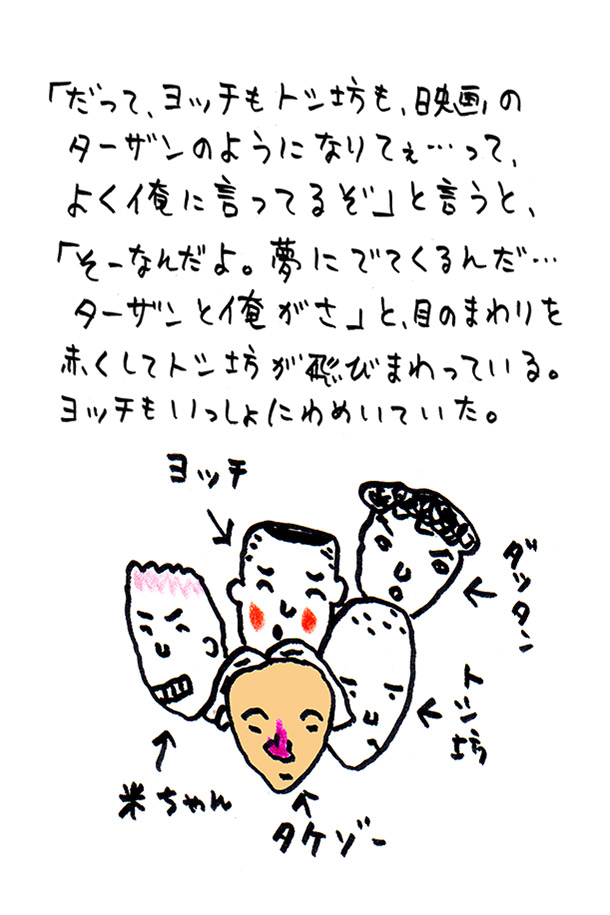 「だって、ヨッチもトシ坊も、映画の
ターザンのようになりてぇ…って、
よく俺に言ってるぞ」と言うと、
「そーなんだよ。夢にでてくるんだ…
ターザンと俺がさ」と、目のまわりを
赤くしてトシ坊が飛びまわっている。
ヨッチもいっしょにわめいていた。
ヨッチ
ダッタン
トシ坊
米ちゃん
タケゾー